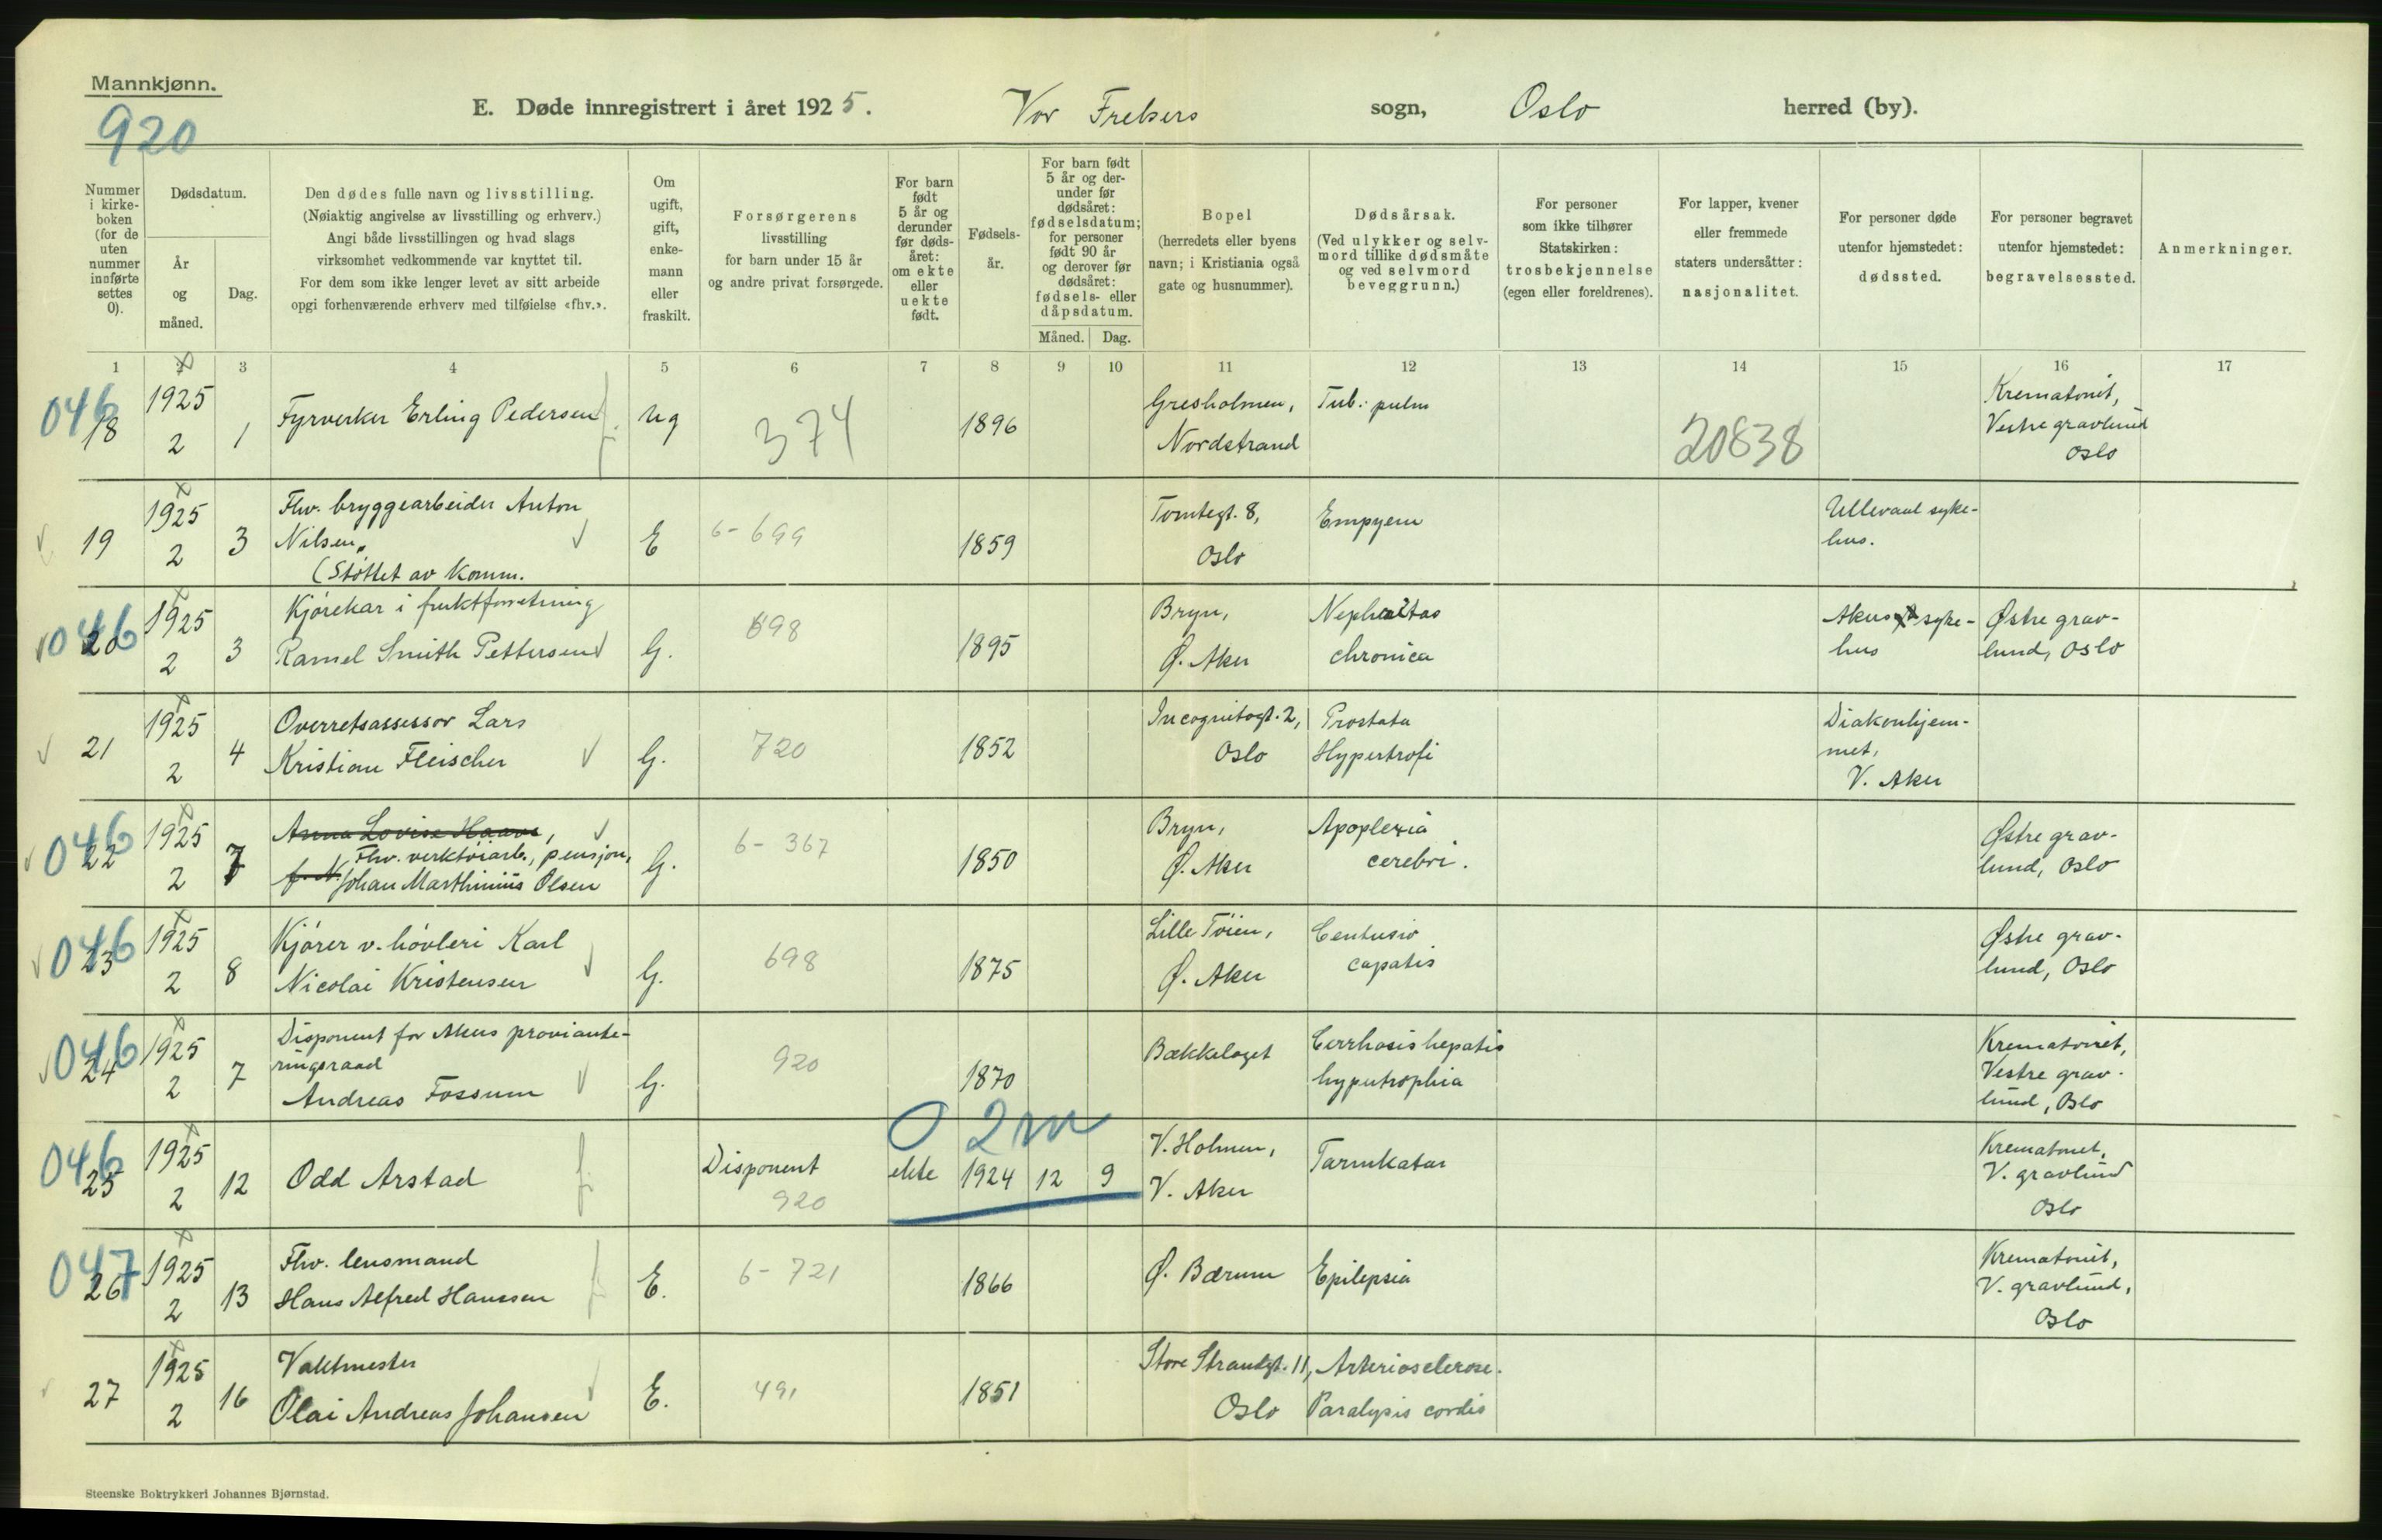 Mannkjønn.
920
E. Døde innregistrert i året 1925. Vor Frelsers sogn, Oslo herred (by).
Nummer i kirke-boken (for de uten nummer innførte settes 0).
Dødsdatum.
År og måned.
Dag.
Den dødes fulle navn og livsstilling.
(Nøiaktig angivelse av livsstilling og erhverv.)
Angi både livsstillingen og hvad slags
virksomhet vedkommende var knyttet til.
For dem som ikke lenger levet av sitt arbeide
opgi forhenværende erhverv med tilføielse «fhv.».
Om ugift, gift, enke-mann eller fraskilt.
Forsørgerens
livsstilling
for barn under 15 år
og andre privat forsørgede.
For barn født 5 år og derunder før døds-året: om ekte eller uekte født.
Fødsels-år.
For barn født 5 år og der-under før dødsåret: fødselsdatum; for personer født 90 år og derover før dødsåret: fødsels- eller dåpsdatum.
Måned. Dag.
Bopel
(herredets eller byens
navn; i Kristiania også
gate og husnummer).
Dødsårsak.
(Ved ulykker og selv-
mord tillike dødsmåte
og ved selvmord
beveggrunn.)
For personer
som ikke tilhører
Statskirken:
trosbekjennelse
(egen eller foreldrenes).
For lapper, kvener
eller fremmede
staters undersåtter:
nasjonalitet.
For personer døde
utenfor hjemstedet:
dødssted.
For personer begravet
utenfor hjemstedet:
begravelsessted.
Anmerkninger.
1 2 3 4 5 6 7 8 9 10 11 12 13 14 15 16 17
046 18 1925 2 1 Fyrverker Erling Pedersen ug 374 1896 Gresholmen, Nordstrand Tub. pulm 20838 Krematoriet, Vestre gravlund Oslo
19 1925 2 3 Fhv. bryggearbeider Anton
Nilsen,
(Støttet av Komm. E 6-699 1859 Tomtegt. 8, Oslo Empyem Ullevaal syke-hus.
046 20 1925 2 3 Kjørekar i fruktforretning
Ramel Smith Pettersen G. 698 1895 Bryn, Ø. Aker Nephritas chronica Akers syke-hus Østre grav-lund, Oslo
21 1925 2 4 Overretsassessor Lars
Kristian Fleischer G. 720 1852 Incognitogt. 2, Oslo Prostata Hypertrofi Diakonhjem-met, V. Aker
046 22 1925 2 7 Anna Lovise Haave,
Fhv. verktøiarb., pensjon,
f. N. Johan Marthinius Olsen G. 6-367 1850 Bryn, Ø. Aker Apoplexia cerebri. Østre grav-lund, Oslo
046 23 1925 2 8 Kjører v. høvleri Karl
Nicolai Kristensen G. 698 1875 Lille Tøien, Ø. Aker Contusio capatis Østre grav-lund, Oslo
046 24 1925 2 7 Disponent for Akers proviante-
ringsraad
Andreas Fossum G. 920 1870 Bækkelaget Cirrhosis hepatis hypertrophia Krematoriet, Vestre grav-lund, Oslo
0 2m
046 25 1925 2 12 Odd Arstad Disponent 920 ekte 1924 12 9 V. Holmen, V. Aker Tarmkatar Krematoriet, V. gravlund Oslo
047 26 1925 2 13 Fhv. lensmand
Hans Alfred Hanssen E. 6-721 1866 Ø. Bærum Epilepsia Krematoriet, V. gravlund, Oslo
27 1925 2 16 Vaktmester
Olai Andreas Johansen E. 491 1851 Store Strandgt. 11, Oslo Arteriosclerose. Paralysis cordis
Steenske Boktrykkeri Johannes Bjørnstad.